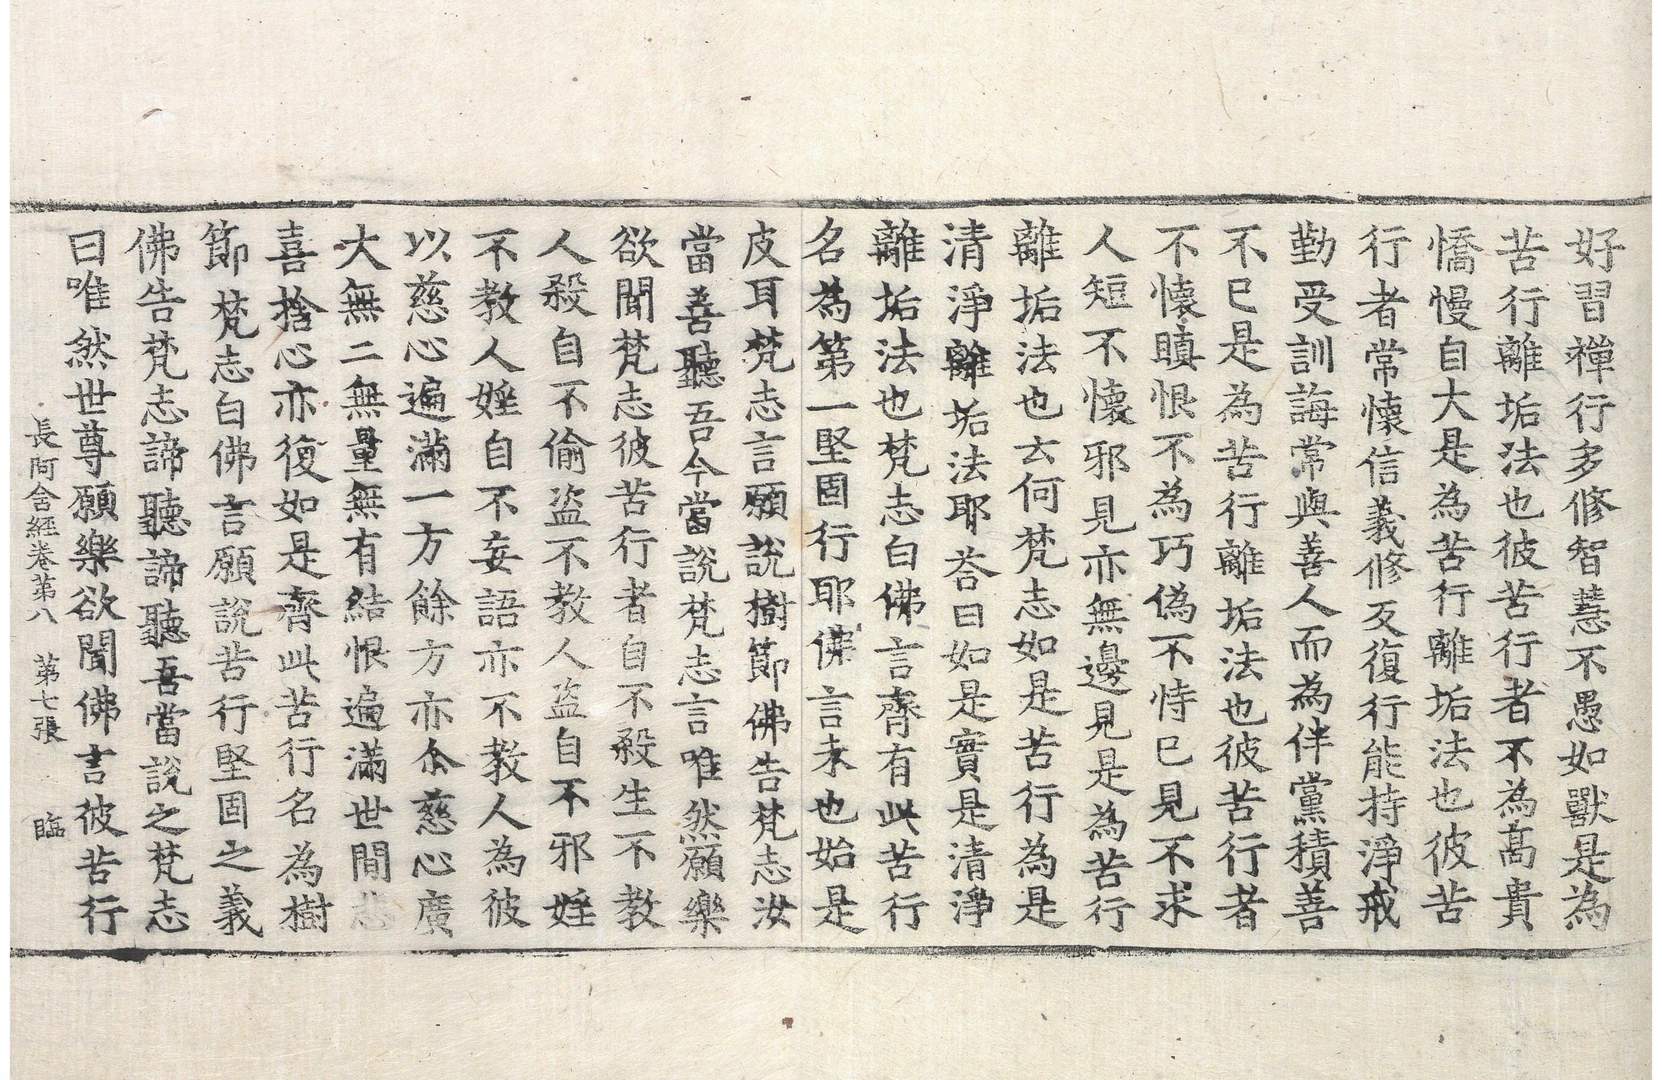 好習禪行多修智慧不愚如獸是為
苦行離垢法也彼苦行者不為髙貴
憍慢自大是為苦行離垢法也彼苦
行者常懷信義修反復行能持淨戒
勤受訓誨常與善人而為伴黨積善
不已是為苦行離垢法也彼苦行者
不懷瞋恨不為巧偽不恃已見不求
人短不懷邪見亦無邊見是為苦行
離垢法也云何梵志如是苦行為是
清淨離垢法耶荅曰如是實是清淨
離垢法也梵志白佛言齊有此苦行
名為第一堅固行耶佛言未也始是
皮耳梵志言願說樹節佛告梵志汝
當善聽吾今當說梵志言唯然願樂
欲聞梵志彼苦行者自不殺生不教
人殺自不偷盜不教人盜自不邪婬
不教人婬自不妄語亦不教人為彼
以慈心遍滿一方餘方亦尒慈心廣
大無二無量無有結恨遍滿世間悲
喜捨心亦復如是齊此苦行名為樹
節梵志白佛言願說苦行堅固之義
佛告梵志諦聽諦聽吾當說之梵志
曰唯然世尊願樂欲聞佛言彼苦行
長阿含經卷第八 第七張 臨